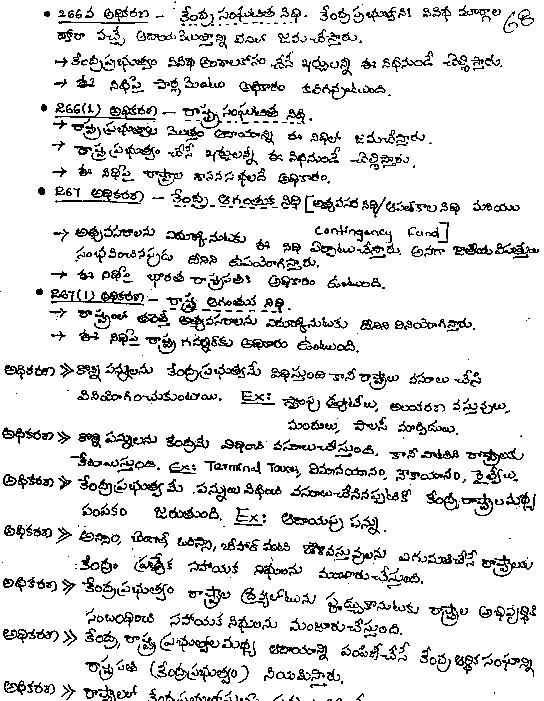 • 266వ అధికరణ - కేంద్ర సంఘటిత నిధి. కేంద్ర ప్రభుత్వానికి వివిధ మార్గాల 68
ద్వారా వచ్చే ఆదాయ మొత్తాన్ని దీనిలో జమచేస్తారు.
→ కేంద్రప్రభుత్వం వివిధ అంశాలకోసం చేసే ఖర్చులన్ని ఈ నిధినుండే చెల్లిస్తారు.
→ ఈ నిధిపై పార్లమెంటు అధికారం కలిగివుంటుంది.
• 266(1) అధికరణ - రాష్ట్ర సంఘటిత నిధి.
→ రాష్ట్ర ప్రభుత్వాల మొత్తం ఆదాయాన్ని ఈ నిధిలో జమచేస్తారు.
→ రాష్ట్ర ప్రభుత్వం చేసే ఖర్చులన్ని ఈ నిధినుండే చెల్లిస్తారు.
→ ఈ నిధిపై రాష్ట్రాల శాసనసభలదే అధికారం.
• 267 అధికరణ - కేంద్ర ఆగంతుక నిధి [అత్యవసర నిధి/ఆపత్కాల నిధి మరియు
Contingency Fund]
→ అత్యవసరాలను ఎదుర్కొనుటకు ఈ నిధి ఏర్పాటుచేస్తారు. అనగా జాతీయ విపత్తులు
సంభవించినప్పుడు దీనిని ఉపయోగిస్తారు.
→ ఈ నిధిపై భారత రాష్ట్రపతికి అధికారం ఉంటుంది.
• 267(1) అధికరణ - రాష్ట్ర ఆగంతుక నిధి.
→ రాష్ట్రంలో తలెత్తే అత్యవసరాలను ఎదుర్కొనుటకు దీనిని వినియోగిస్తారు.
→ ఈ నిధిపై రాష్ట్ర గవర్నర్‌కు అధికారం ఉంటుంది.
అధికరణ >> కొన్ని పన్నులను కేంద్రప్రభుత్వమే విధిస్తుంది కానీ రాష్ట్రాలు వసూలు చేసి
వినియోగించుకుంటాయి. Ex: స్టాంపు డ్యూటీలు, అలంకరణ వస్తువులు,
మందులు,
అధికరణ >> కొన్ని పన్నులను కేంద్రమే విధించి వసూలుచేస్తుంది. కానీ వాటిని రాష్ట్రాలకు
కేటాయిస్తుంది. Ex: Terminal Taxes, విమానయానం, నౌకాయానం, రైల్వేలు.
అధికరణ >> కేంద్రప్రభుత్వమే పన్నులు విధించి వసూలుచేసినప్పటికీ కేంద్ర, రాష్ట్రాల మధ్య
పంపకం జరుగుతుంది. Ex: ఆదాయపు పన్ను.
అధికరణ >> అస్సాం, బెంగాల్, ఒరిస్సా, బీహార్ వంటి వస్తువులను ఎగుమతిచేసే రాష్ట్రాలకు
కేంద్రం ప్రత్యేక సహాయక నిధులను మంజూరుచేస్తుంది.
అధికరణ >> కేంద్రప్రభుత్వం రాష్ట్రాల రాష్ట్రాల అభివృద్ధికి
సంబంధించి సహాయక నిధులను మంజూరుచేస్తుంది.
అధికరణ >> కేంద్ర, రాష్ట్ర ప్రభుత్వాల మధ్య ఆదాయాన్ని పంపిణీచేసే కేంద్ర ఆర్థిక సంఘాన్ని
రాష్ట్రపతి (కేంద్రప్రభుత్వం) నియమిస్తారు.
అధికరణ >> రాష్ట్రాలలో